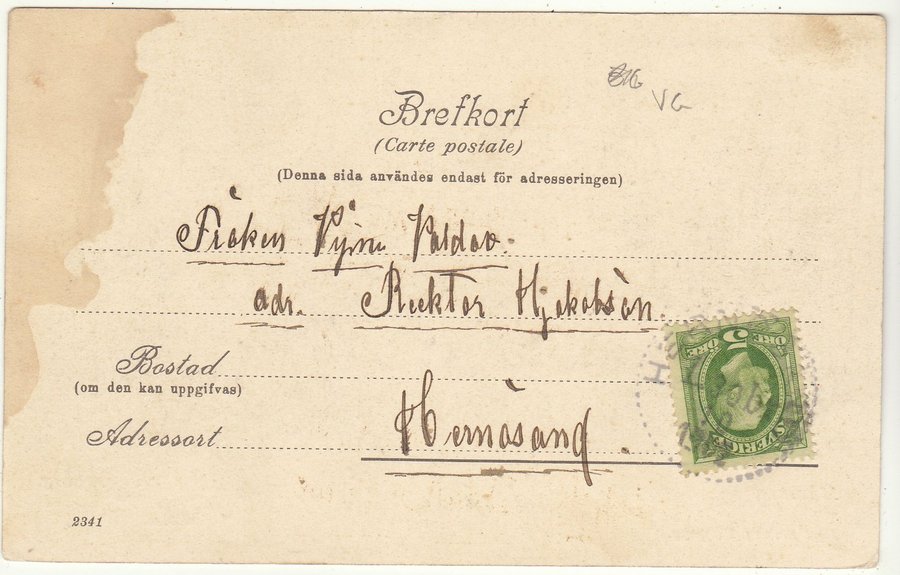 VG
Brefkort
(Carte postale)
(Denna sida användes endast för adresseringen)
Fröken
adr. Recktor
Bostad
(om den kan uppgifvas)
Adressort Hernösand.
5
ÖRE ÖRE
SVERIGE
2341